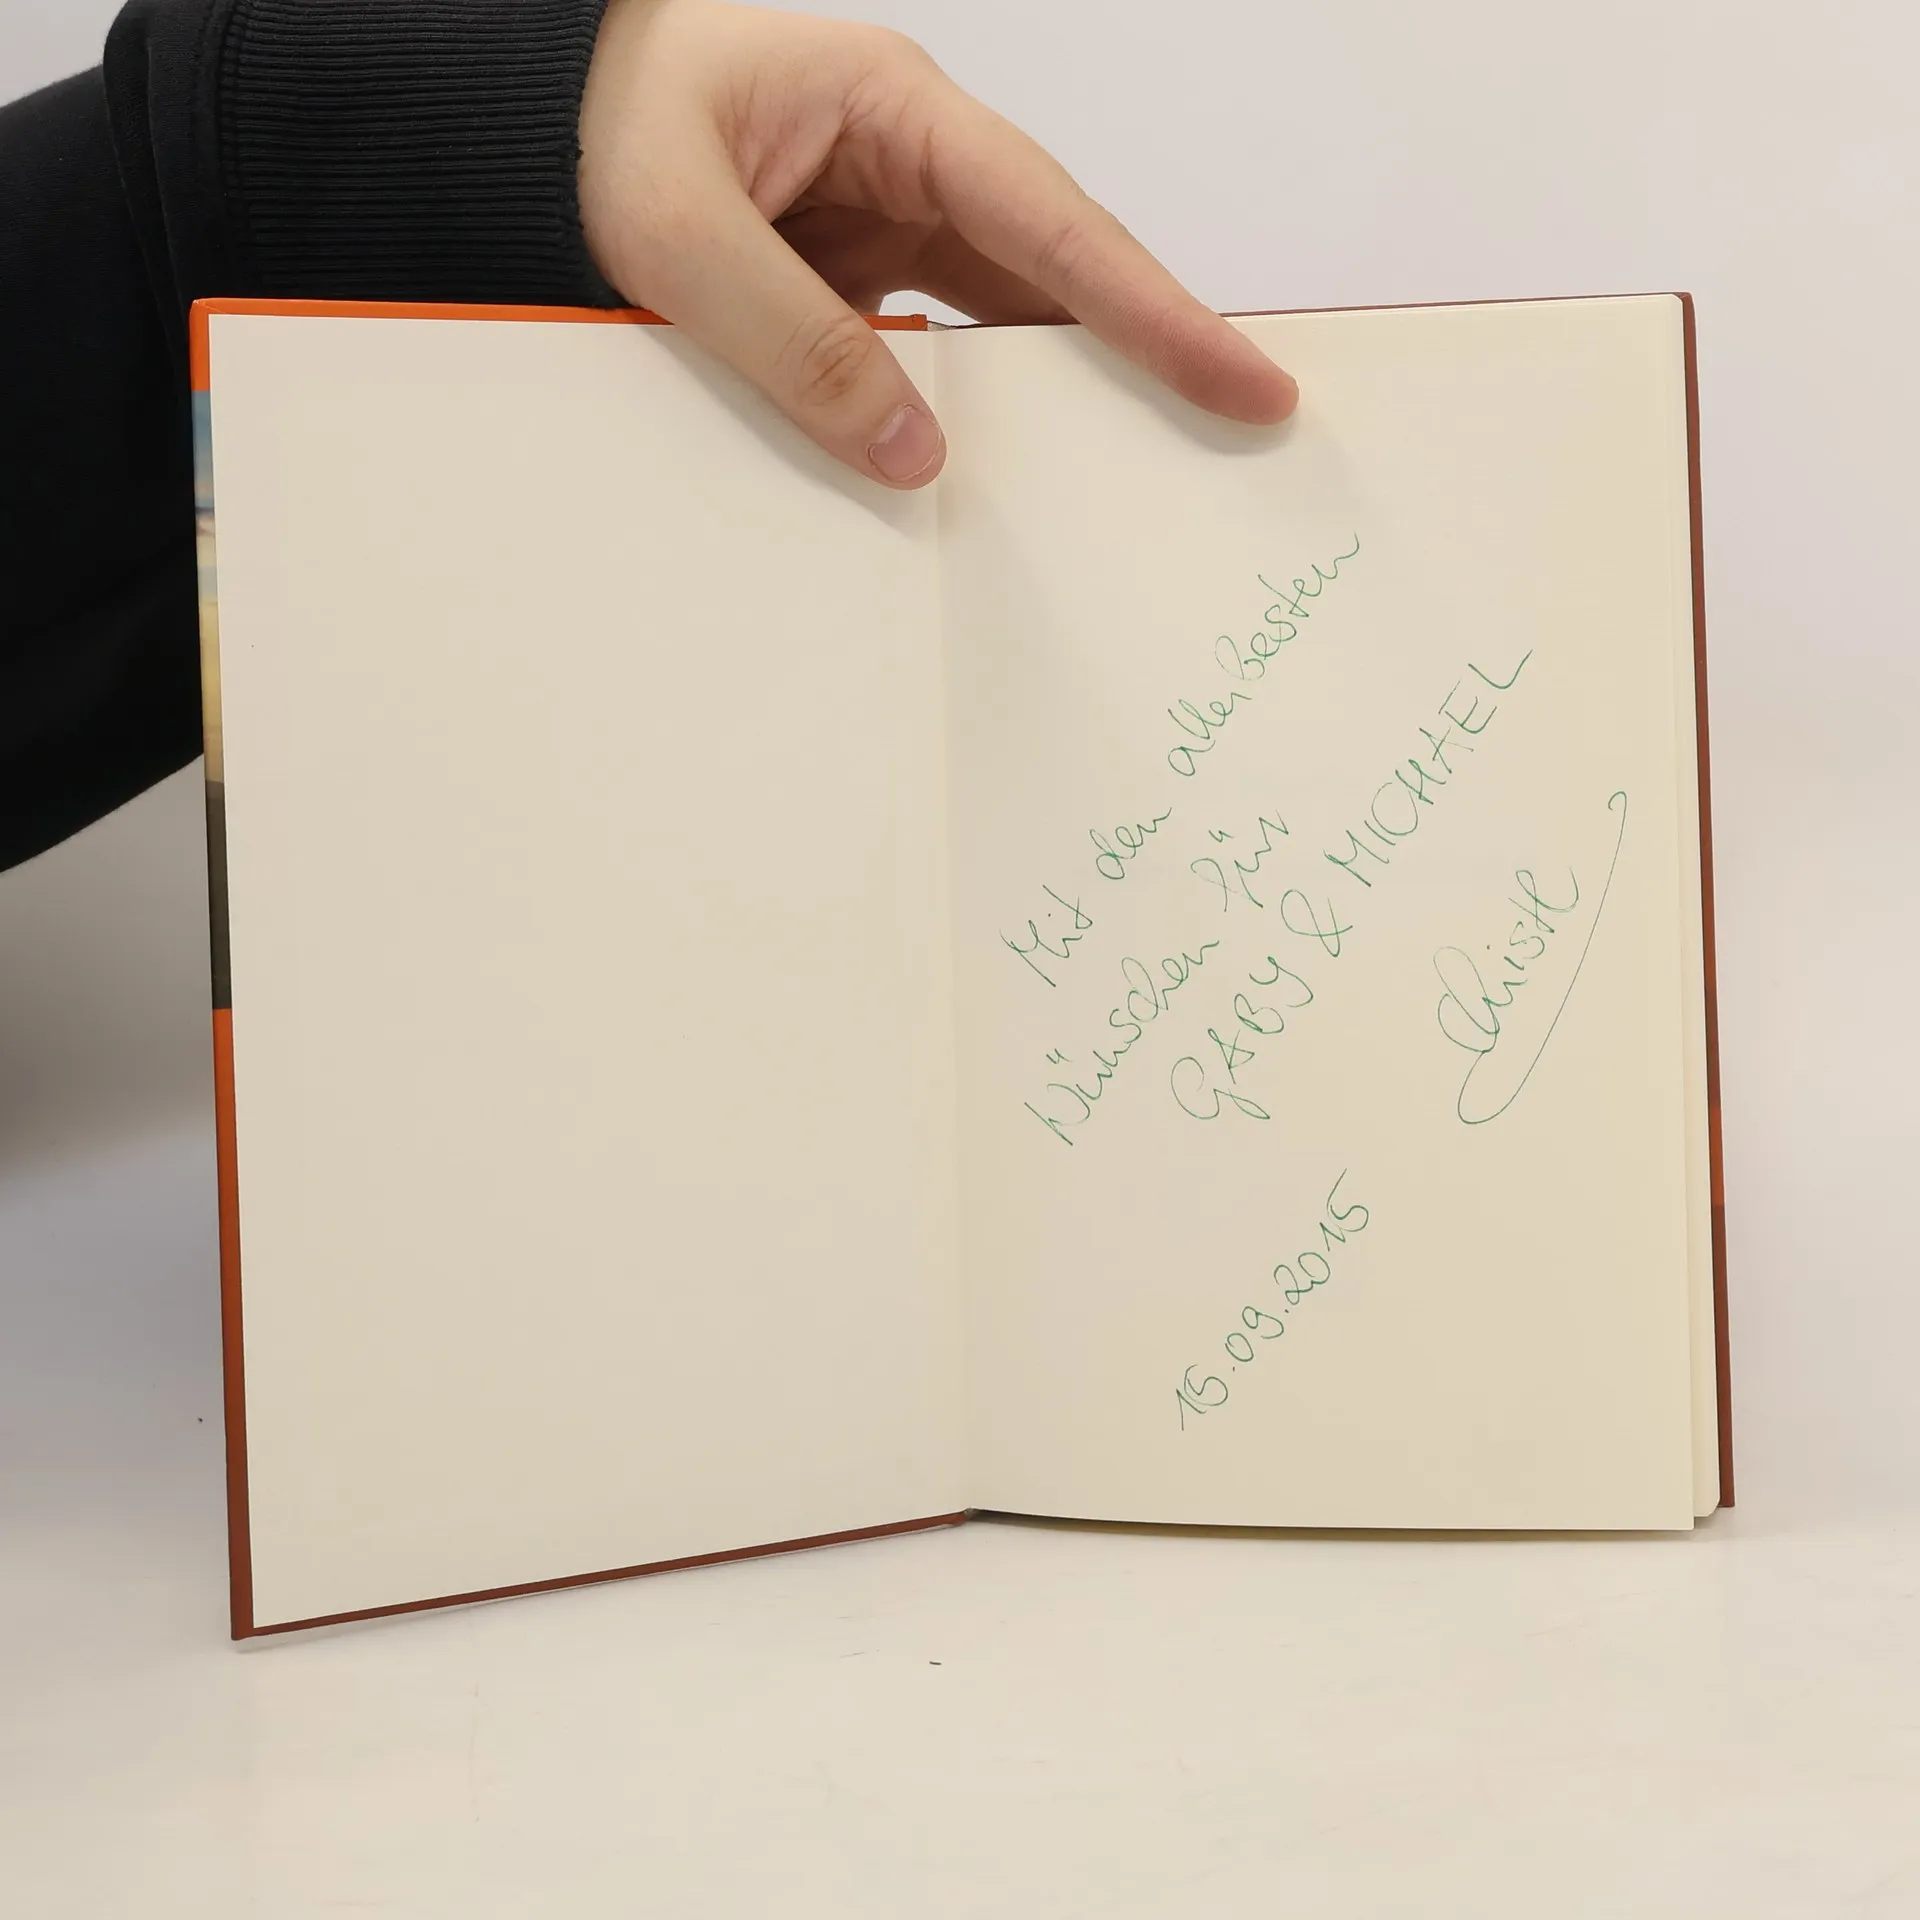 Mit den allerbesten
Wünschen für
GABY & MICHAEL
Christl
15.09.2015